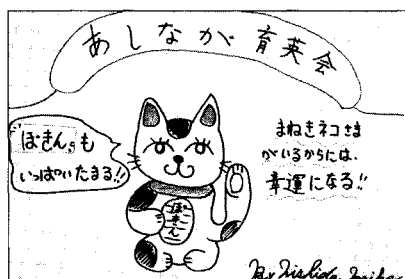 あしなが育英会
ぼきんも
いっぱいたまる!!
まねきネコさま
がいるからには、
幸運になる!!
ぼきん
By Nishida